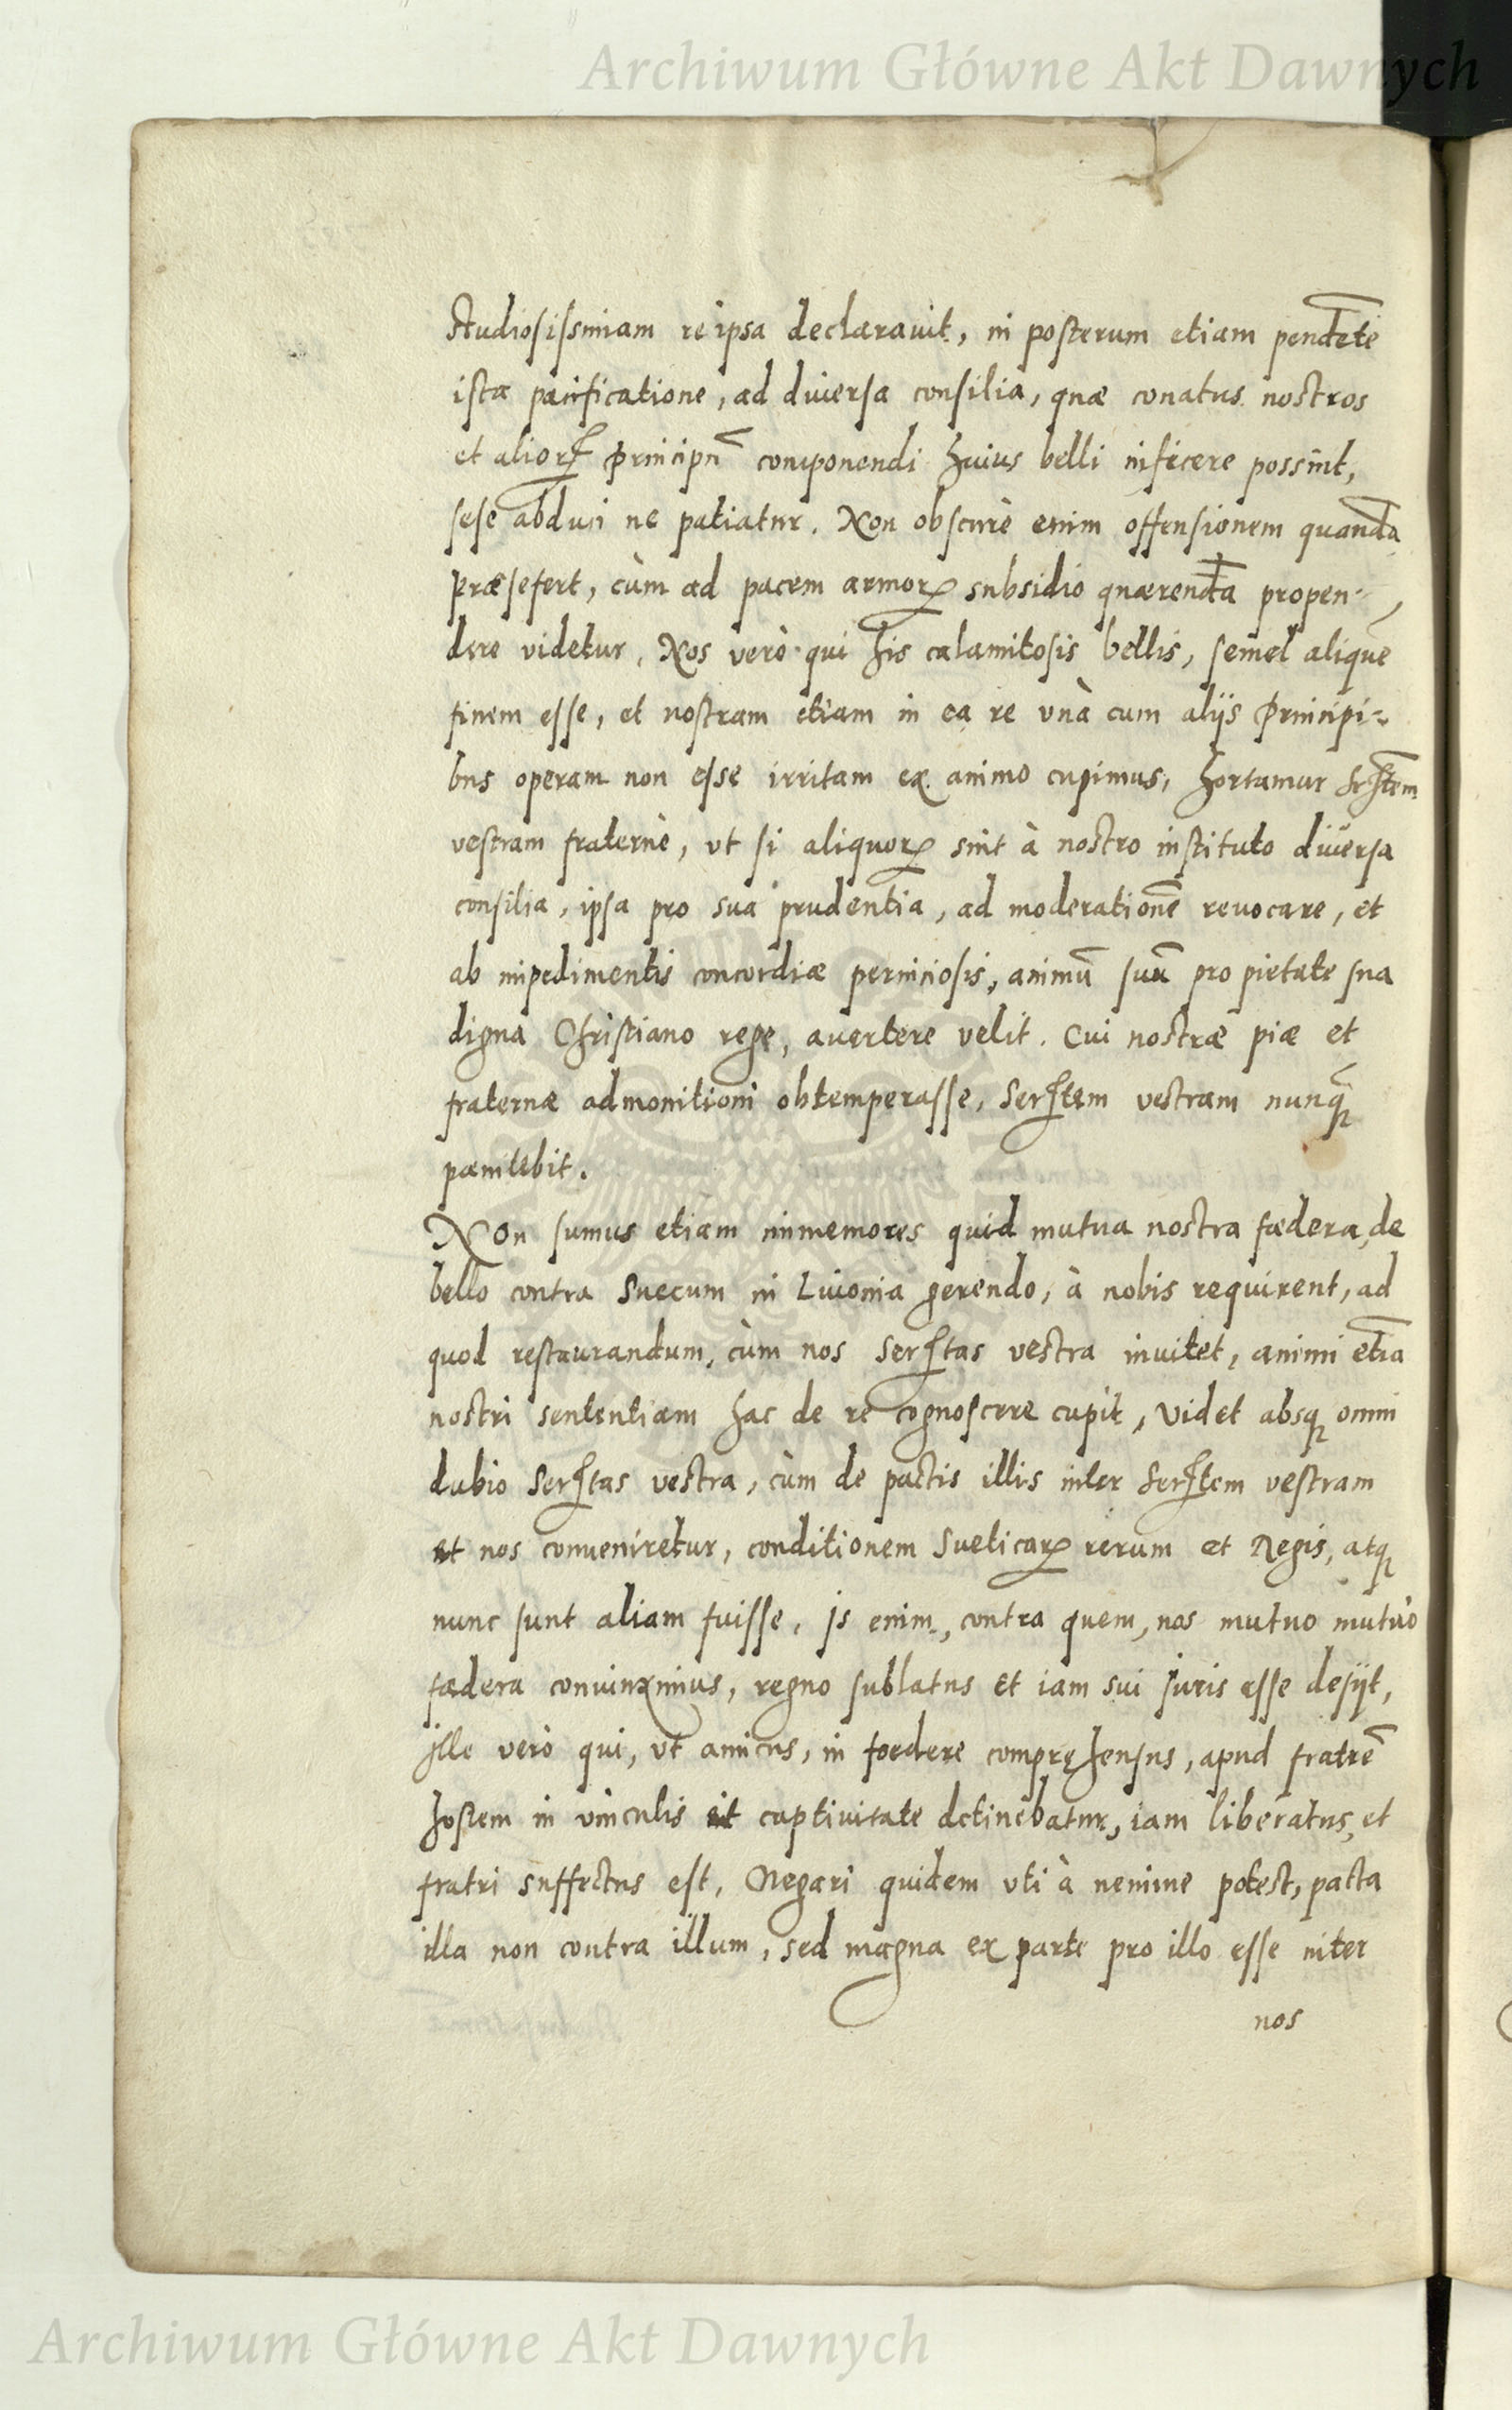 Archiwum Główne Akt Dawnych
studiosissimam reipsa declarauit, in posterum etiam pendẽtè
ista pacificatione, ad diuersa consilia, quæ conatus nostros
et aliorꝝ Principũ componendi huius belli inficere possint,
sese abduci ne patiatur. Non obscurè enim offensionem quandã
præsefert, cùm ad pacem armorꝝ subsidio quærendã propen-
dere videtur, Nos verò qui his calamitosis bellis, semel aliquẽ
finem esse, et nostram etiam in ea re vnà cum alijs Principi-
bus operam non esse irritam ex animo cupimus, hortamur Serᵗᵉᵐ
vestram fraternè, vt si aliquorꝝ sint à nostro instituto diuersa
consilia, ipsa pro sua prudentia, ad moderationẽ reuocare, et
ab impedimentis concordiæ perniciosis, animũ suũ pro pietate sua
digna Christiano rege, auertere velit. Cui nostræ piæ et
fraternæ admonitioni obtemperasse, Serᵗᵉᵐ vestram nunꝗ̃
pænitebit.
NOn sumus etiam immemores quid mutua nostra fædera, de
bello contra Suecum in Liuonia gerendo, à nobis requirent, ad
quod restaurandum, cùm nos Serᵗᵃˢ vestra inuitet, animi etiã
nostri sententiam hac de re cognoscere cupit, videt absqꝫ omni
dubio Serᵗᵃˢ vestra, cùm de pactis illis inter Serᵗᵉᵐ vestram
et nos conueniretur, conditionem Sueticarꝝ rerum et Regis, atqꝫ
nunc sunt aliam fuisse, js enim, contra quem, nos mutuo mutùo
fædera conuinximus, regno sublatus et iam sui juris esse desijt,
jlle verò qui, vt amicus, in foedere compręhensus, apud fratrẽ
hostem in vinculis et captiuitate detinebatur, iam liberatus, et
fratri suffectus est, Negari quidem vti à nemine potest, pacta
illa non contra illum, sed magna ex parte pro illo esse inter
nos
Archiwum Główne Akt Dawnych